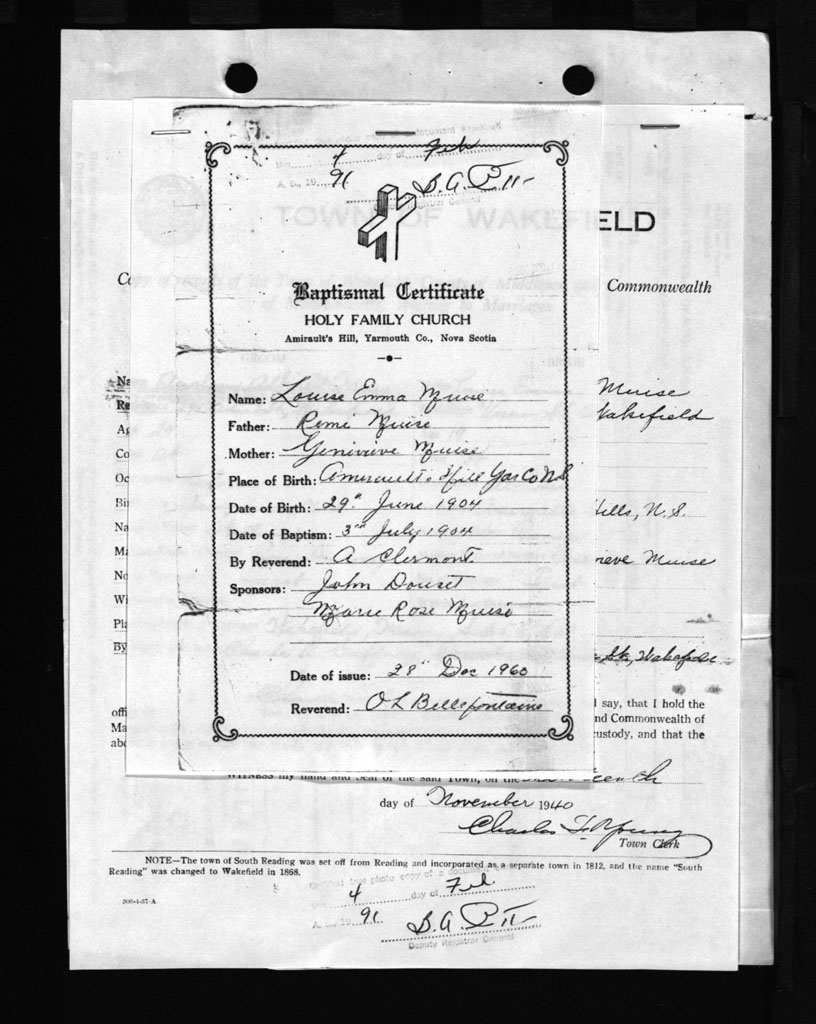 4 day of Feb
A. D. 19 91 B.A.
TOWN OF WAKEFIELD
Baptismal Certificate
HOLY FAMILY CHURCH
Amirault's Hill, Yarmouth Co., Nova Scotia
Commonwealth
Name: Louise Emma Muise
Father: Remi Muise
Mother: Genevieve Muise
Place of Birth: Amirault's Hill Yar Co N.S
Date of Birth: 29th June 1904
Date of Baptism: 3rd July 1904
By Reverend: A Clermont
Sponsors: John Douset
Marie Rose Muise
Date of issue: 28th Dec 1960
Reverend: O L Bellefontaine
Muise
Wakefield
Hills, N.S.
Muise
St, Wakefield
say, that I hold the
nd Commonwealth of
custody, and that the
WITNESS my hand and Seal of the said Town, on the
day of November 1940
Charles F. Young
Town Clerk
NOTE—The town of South Reading was set off from Reading and incorporated as a separate town in 1812, and the name "South
Reading" was changed to Wakefield in 1868.
4 day of Feb
A. D. 19 91
B.A.
Deputy Registrar General